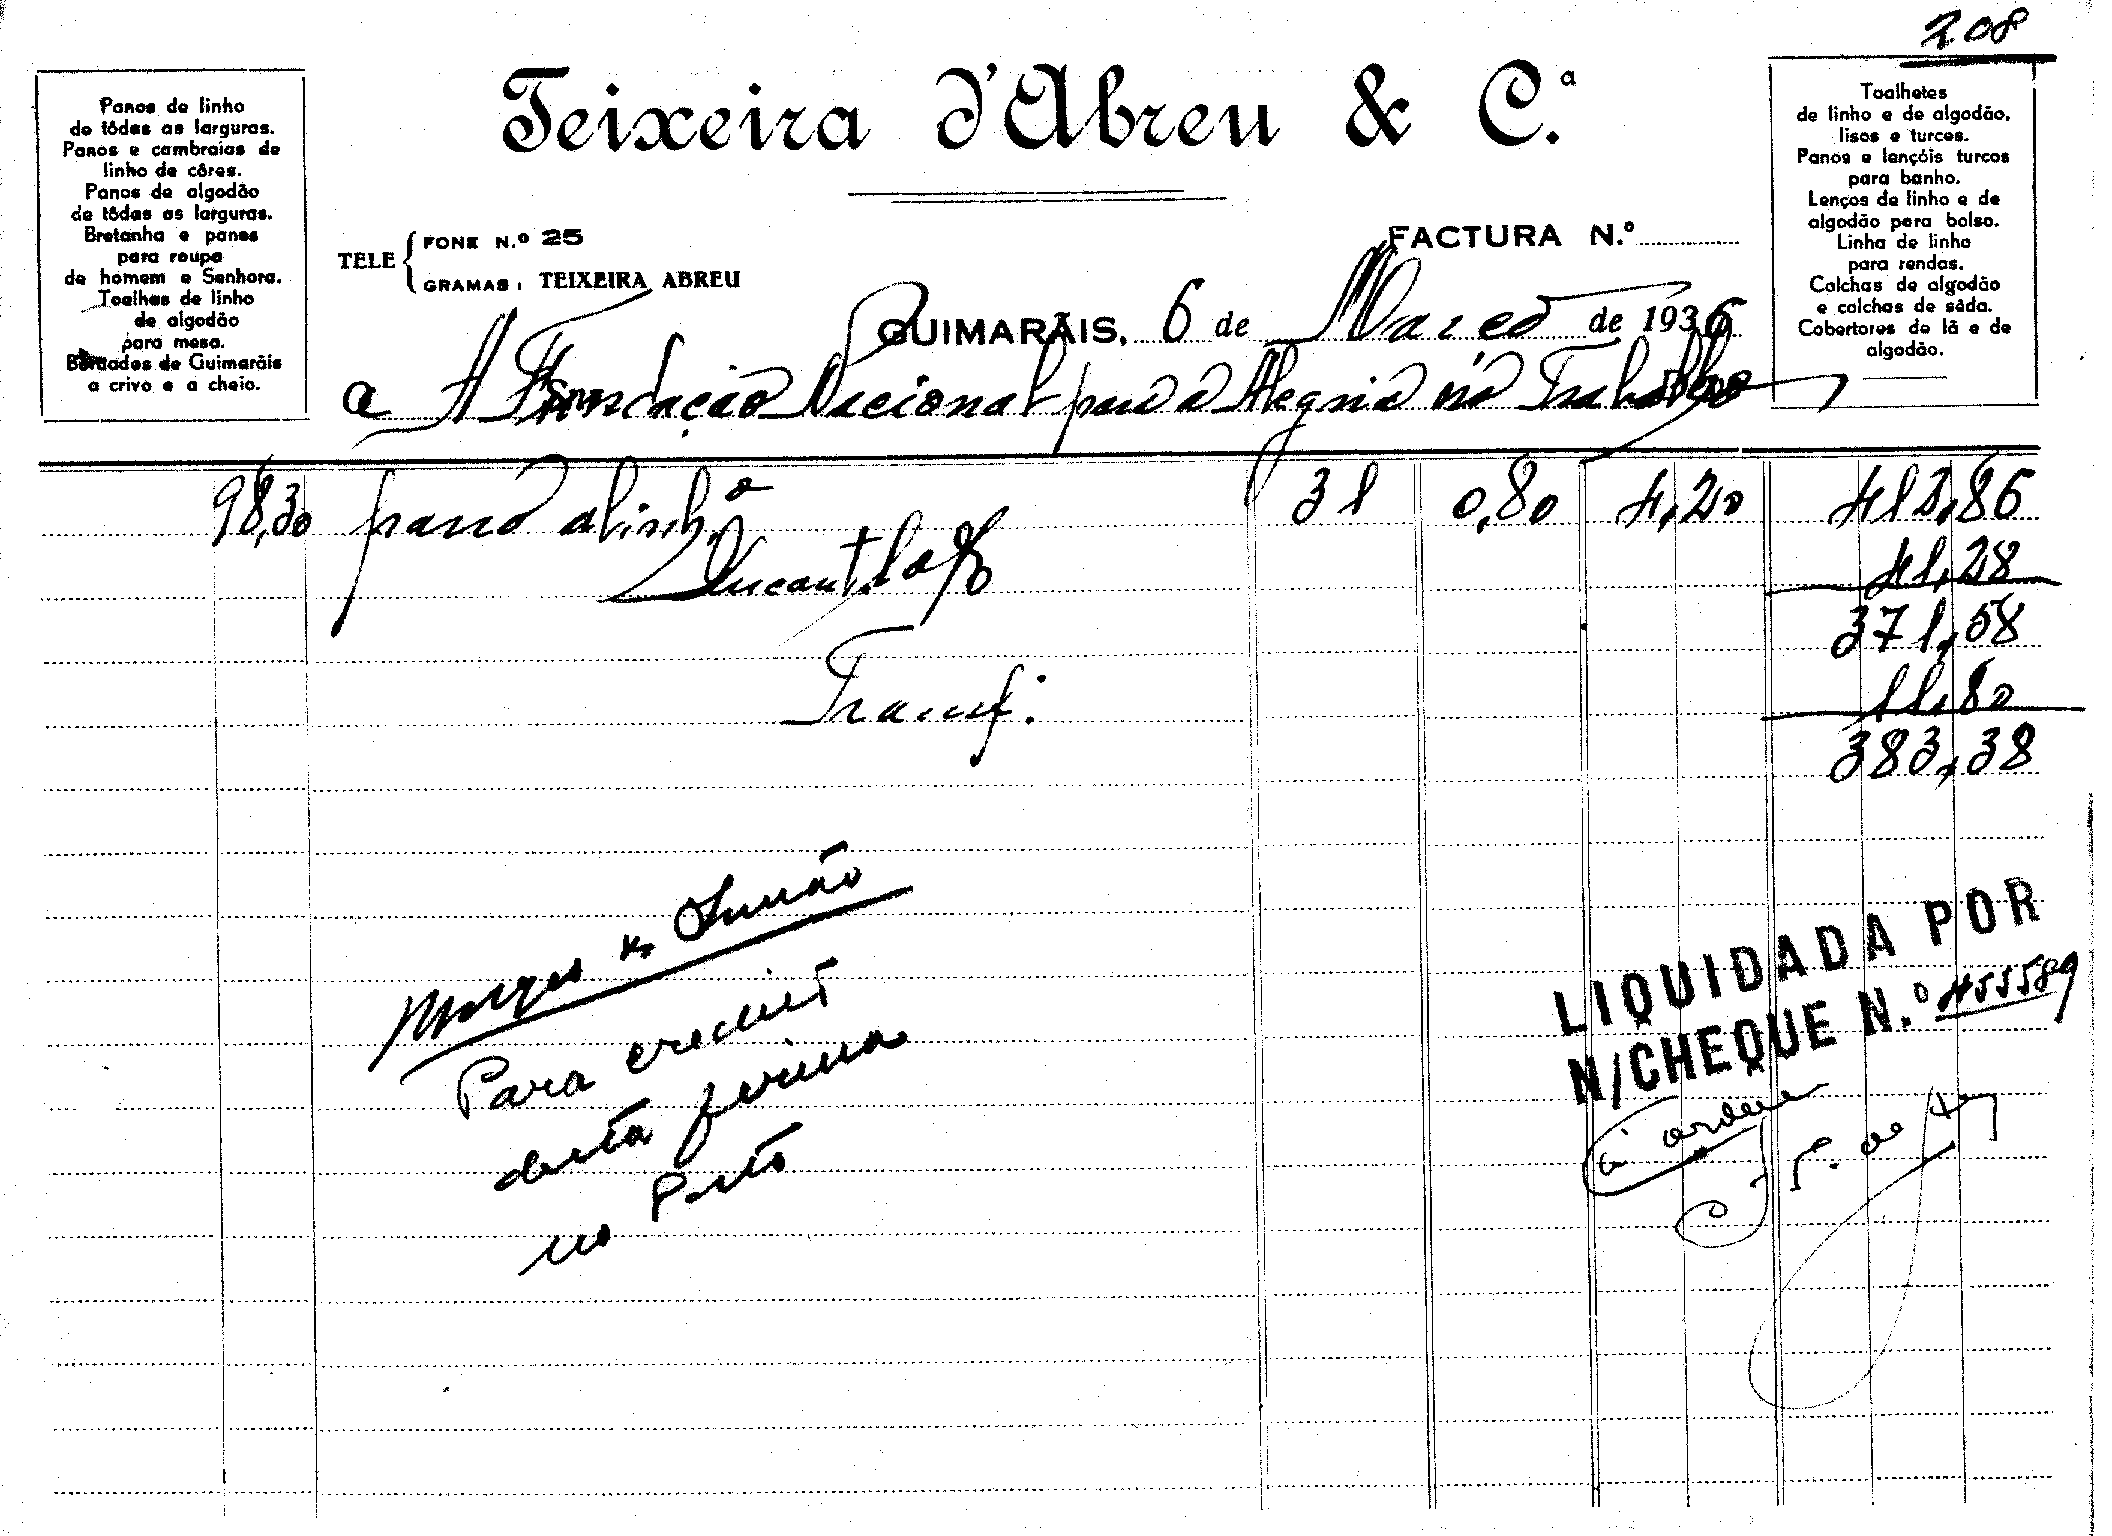 208
Teixeira d'Abreu & C.ª
Panos de linho
de tôdas as larguras.
Panos e cambraias de
linho de côres.
Panos de algodão
de tôdas as larguras.
Bretanha e panos
para roupa
de homem e Senhora.
Toalhas de linho
de algodão
para mesa.
Bordados de Guimarãis
a crivo e a cheio.
Toalhetes
de linho e de algodão,
lisos e turcos.
Panos e lençóis turcos
para banho.
Lenços de linho e de
algodão para bolso.
Linha de linho
para rendas.
Colchas de algodão
e colchas de sêda.
Cobertores de lã e de
algodão.
TELE
FONE N.º 25
GRAMAS: TEIXEIRA ABREU
FACTURA N.º
GUIMARÃIS, 6 de Março de 1936
a A Fundação Nacional para a Alegria no Trabalho
98,30 pano alinh.º 31 0,80 4,20 412,86
41,28
371,58
Transf. 11,80
383,38
Para credito
desta firma
no Porto
LIQUIDADA POR
N/CHEQUE N.º 455589
à ordem